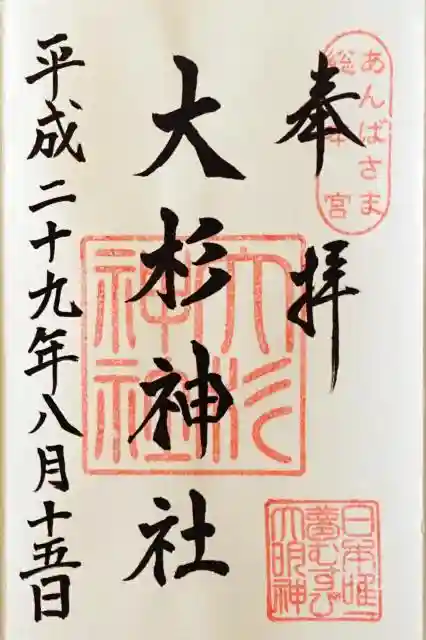 あんばさま
総本宮
奉拝
大杉神社
大杉
神社
日本唯一
夢むすび
大明神
平成二十九年八月十五日